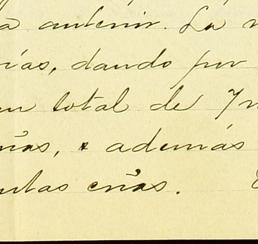 a anterior. La
ías, dando por
un total de 7
ñas, e además
ntas cñas.